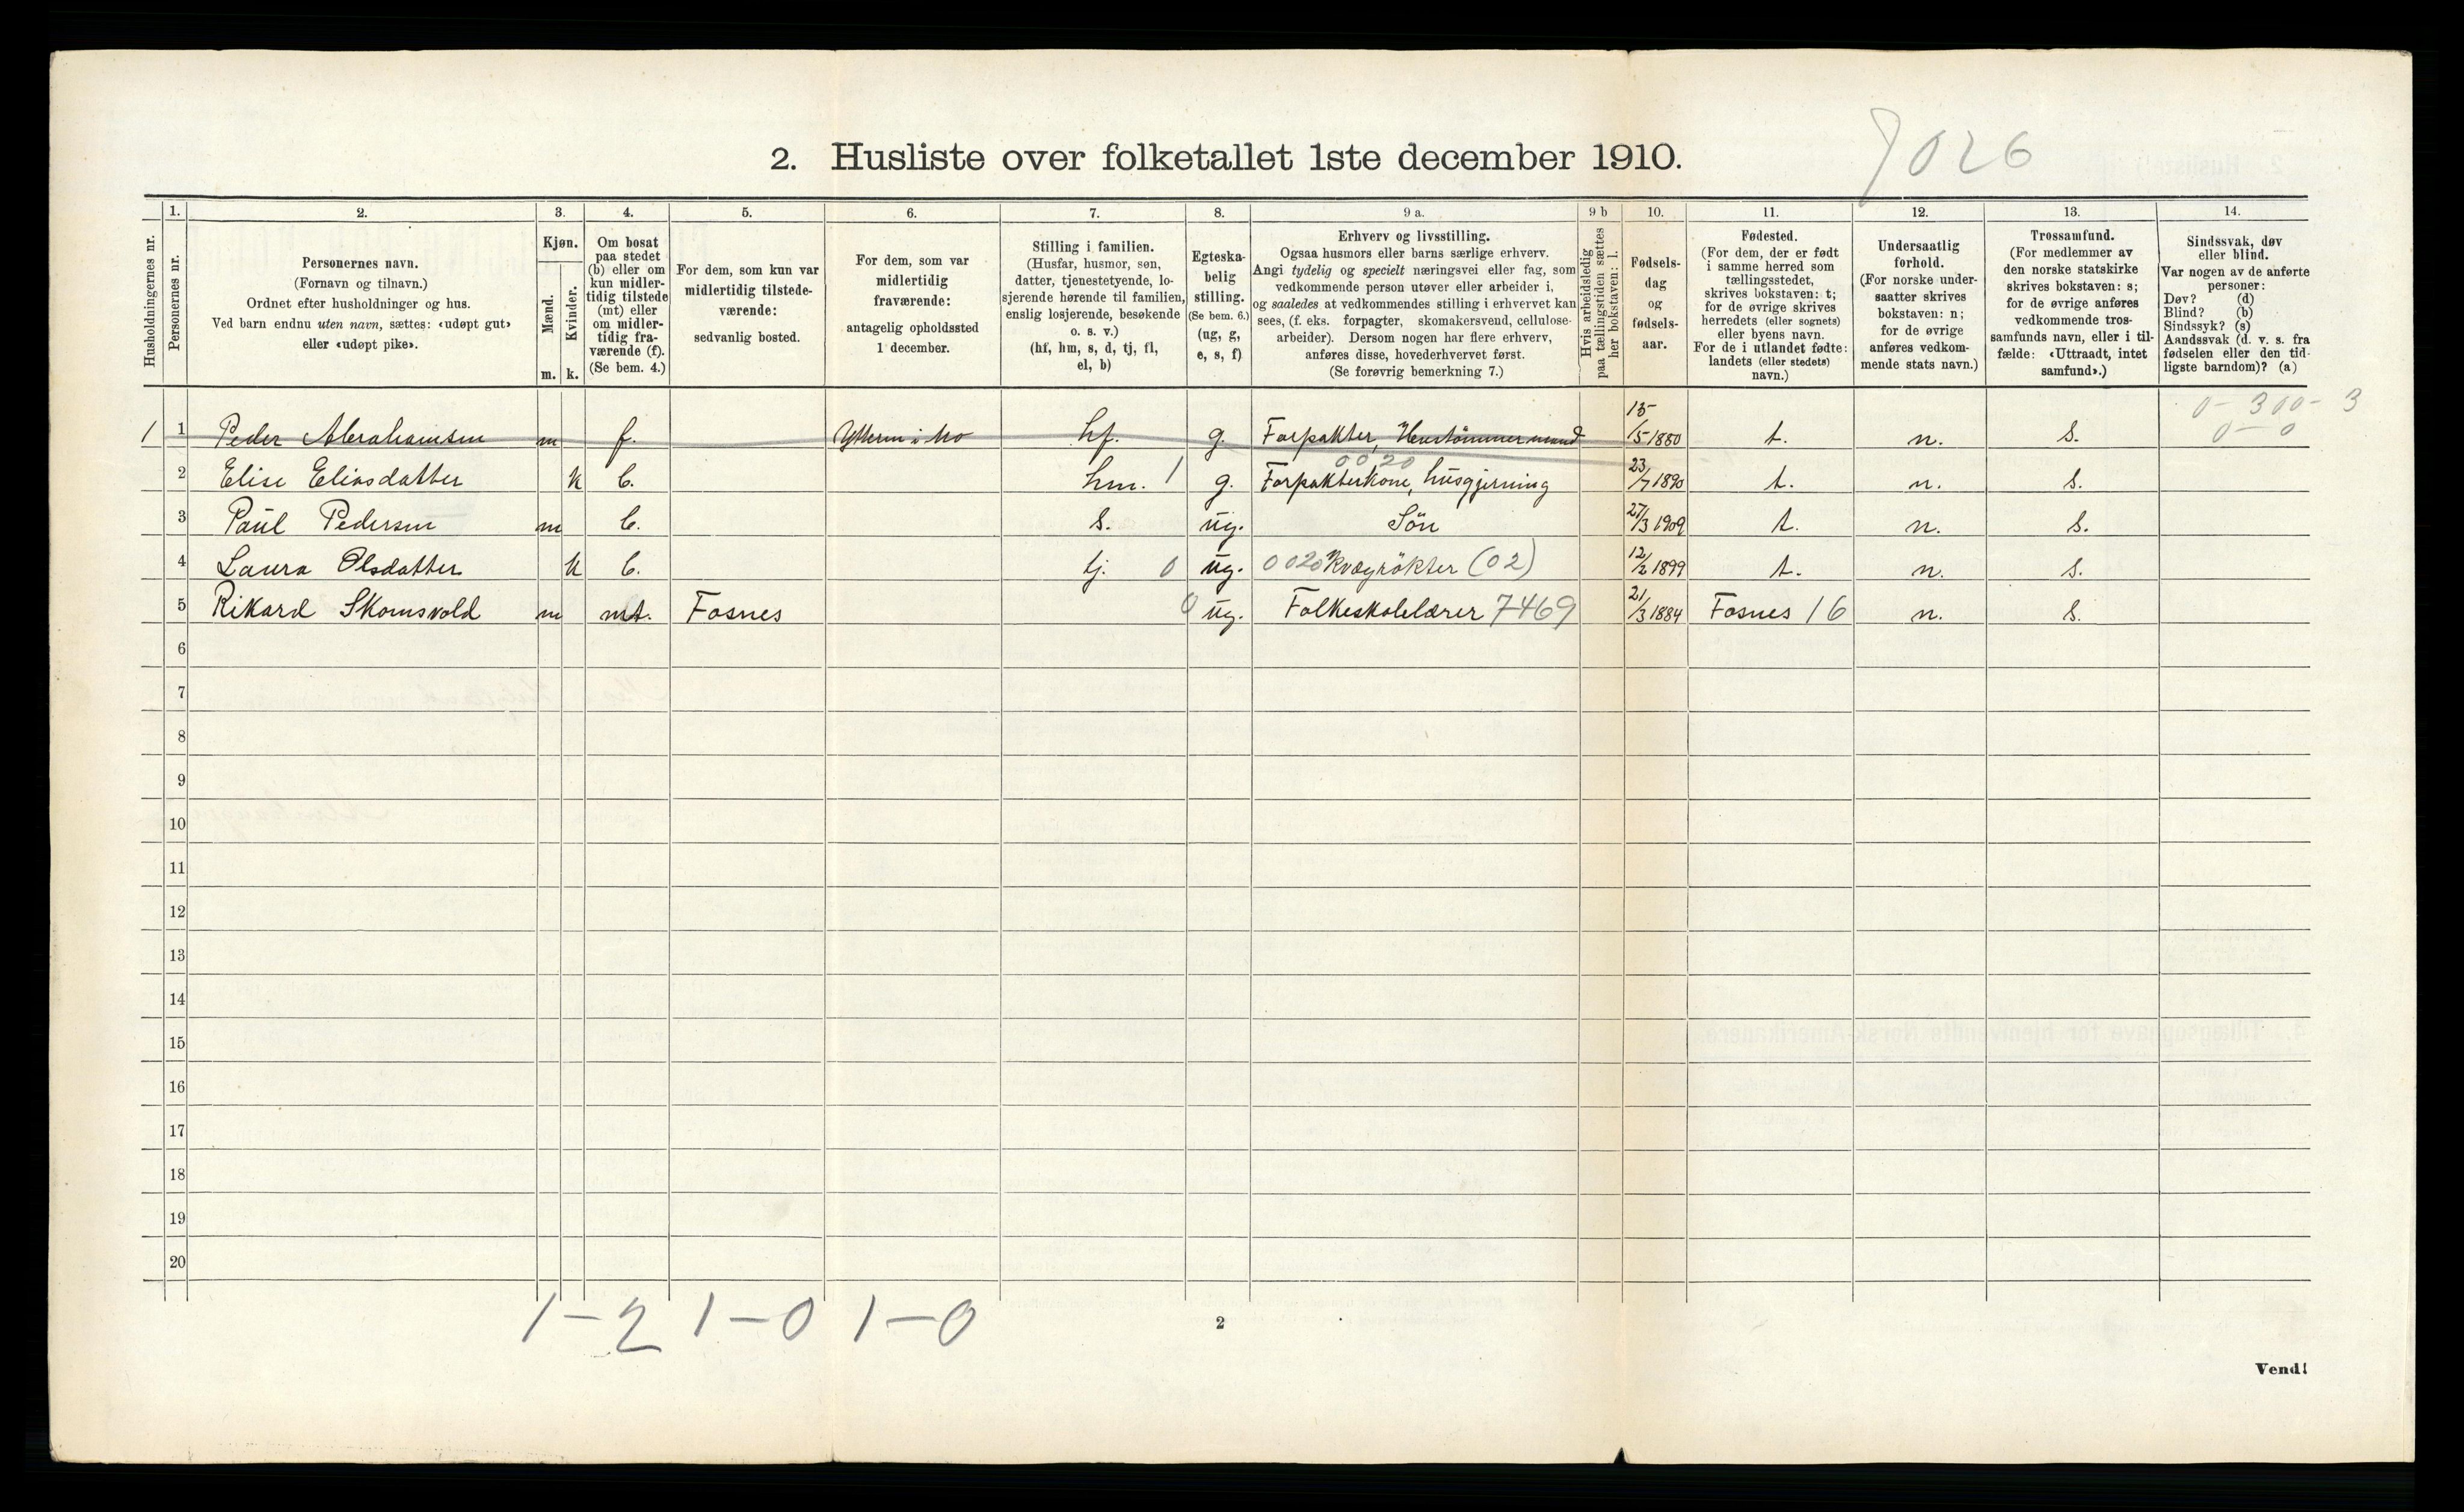 2. Husliste over folketallet 1ste december 1910.
1. 2. 3. 4. 5. 6. 7. 8. 9 a. 9 b 10. 11. 12. 13. 14.
Husholdningernes nr.
Personernes nr.
Personernes navn.
(Fornavn og tilnavn.)
Ordnet efter husholdninger og hus.
Ved barn endnu uten navn, sættes: «udøpt gut»
eller «udøpt pike».
Kjøn.
Mænd.
Kvinder.
m. k.
Om bosat
paa stedet
(b) eller om
kun midler-
tidig tilstede
(mt) eller
om midler-
tidig fra-
værende (f).
(Se bem. 4.)
For dem, som kun var
midlertidig tilstede-
værende:
sedvanlig bosted.
For dem, som var
midlertidig
fraværende:
antagelig opholdssted
1 december.
Stilling i familien.
(Husfar, husmor, søn,
datter, tjenestetyende, lo-
sjerende hørende til familien,
enslig losjerende, besøkende
o. s. v.)
(hf, hm, s, d, tj, fl,
el, b)
Egteska-
belig
stilling.
(Se bem. 6.)
(ug, g,
e, s, f)
Erhverv og livsstilling.
Ogsaa husmors eller barns særlige erhverv.
Angi tydelig og specielt næringsvei eller fag, som
vedkommende person utøver eller arbeider i,
og saaledes at vedkommendes stilling i erhvervet kan
sees, (f. eks. forpagter, skomakersvend, cellulose-
arbeider). Dersom nogen har flere erhverv,
anføres disse, hovederhvervet først.
(Se forøvrig bemerkning 7.)
Hvis arbeidsledig
paa tællingstiden sættes
her bokstaven: l.
Fødsels-
dag
og
fødsels-
aar.
Fødested.
(For dem, der er født
i samme herred som
tællingsstedet,
skrives bokstaven: t;
for de øvrige skrives
herredets (eller sognets)
eller byens navn.
For de i utlandet fødte:
landets (eller stedets)
navn.)
Undersaatlig
forhold.
(For norske under-
saatter skrives
bokstaven: n;
for de øvrige
anføres vedkom-
mende stats navn.)
Trossamfund.
(For medlemmer av
den norske statskirke
skrives bokstaven: s;
for de øvrige anføres
vedkommende tros-
samfunds navn, eller i til-
fælde: «Uttraadt, intet
samfund».)
Sindssvak, døv
eller blind.
Var nogen av de anførte
personer:
Døv? (d)
Blind? (b)
Sindssyk? (s)
Aandssvak (d. v. s. fra
fødselen eller den tid-
ligste barndom)? (a)
0 - 300 - 3
0 - 0
1 1 Peder Abrahamsen m f. hf. g. Forpakter, 15/5 1880 t. n. s.
0020
2 Elise Eliasdatter k b. hm. 1 g. Forpakterkone, husgjerning 23/7 1890 t. n. s.
3 Paul Pedersen m b. s. ug. Sön 27/3 1909 t. n. s.
4 Laura Olsdatter k b. tj. 0 ug. 0020 Kvægrökter (02) 12/2 1899 t. n. s.
5 Rikard Skomsvold m mt. Fosnes 0 ug. Folkeskolelærer 7469 21/3 1884 Fosnes 16 n. s.
6
7
8
9
10
11
12
13
14
15
16
17
18
19
20
1-2 1-0 1-0
2
Vend!